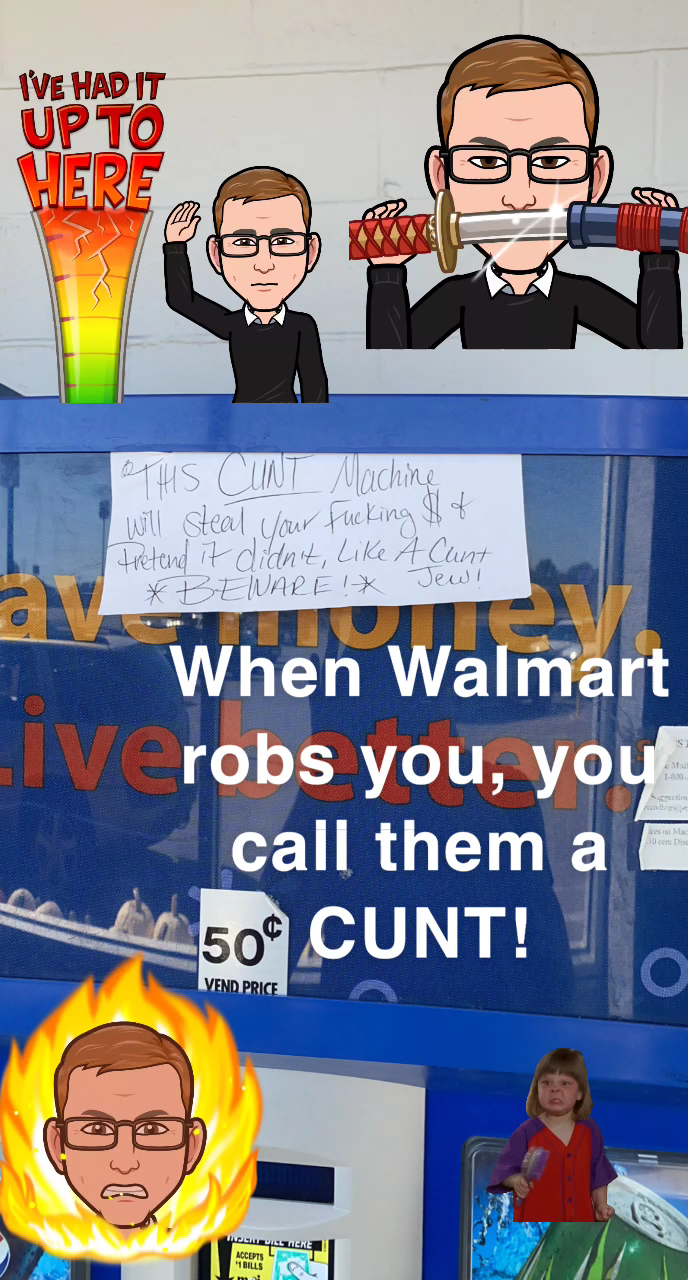 I'VE HAD IT
UP TO
HERE
THIS CUNT Machine
will steal your Fucking $ &
Pretend it didn't, Like A Cunt
* BEWARE! * Jew!
ave money.
Live better.
When Walmart
robs you, you
call them a
CUNT!
1-800-
50¢
VEND PRICE
INSERT BILL HERE
ACCEPTS
$1 BILLS